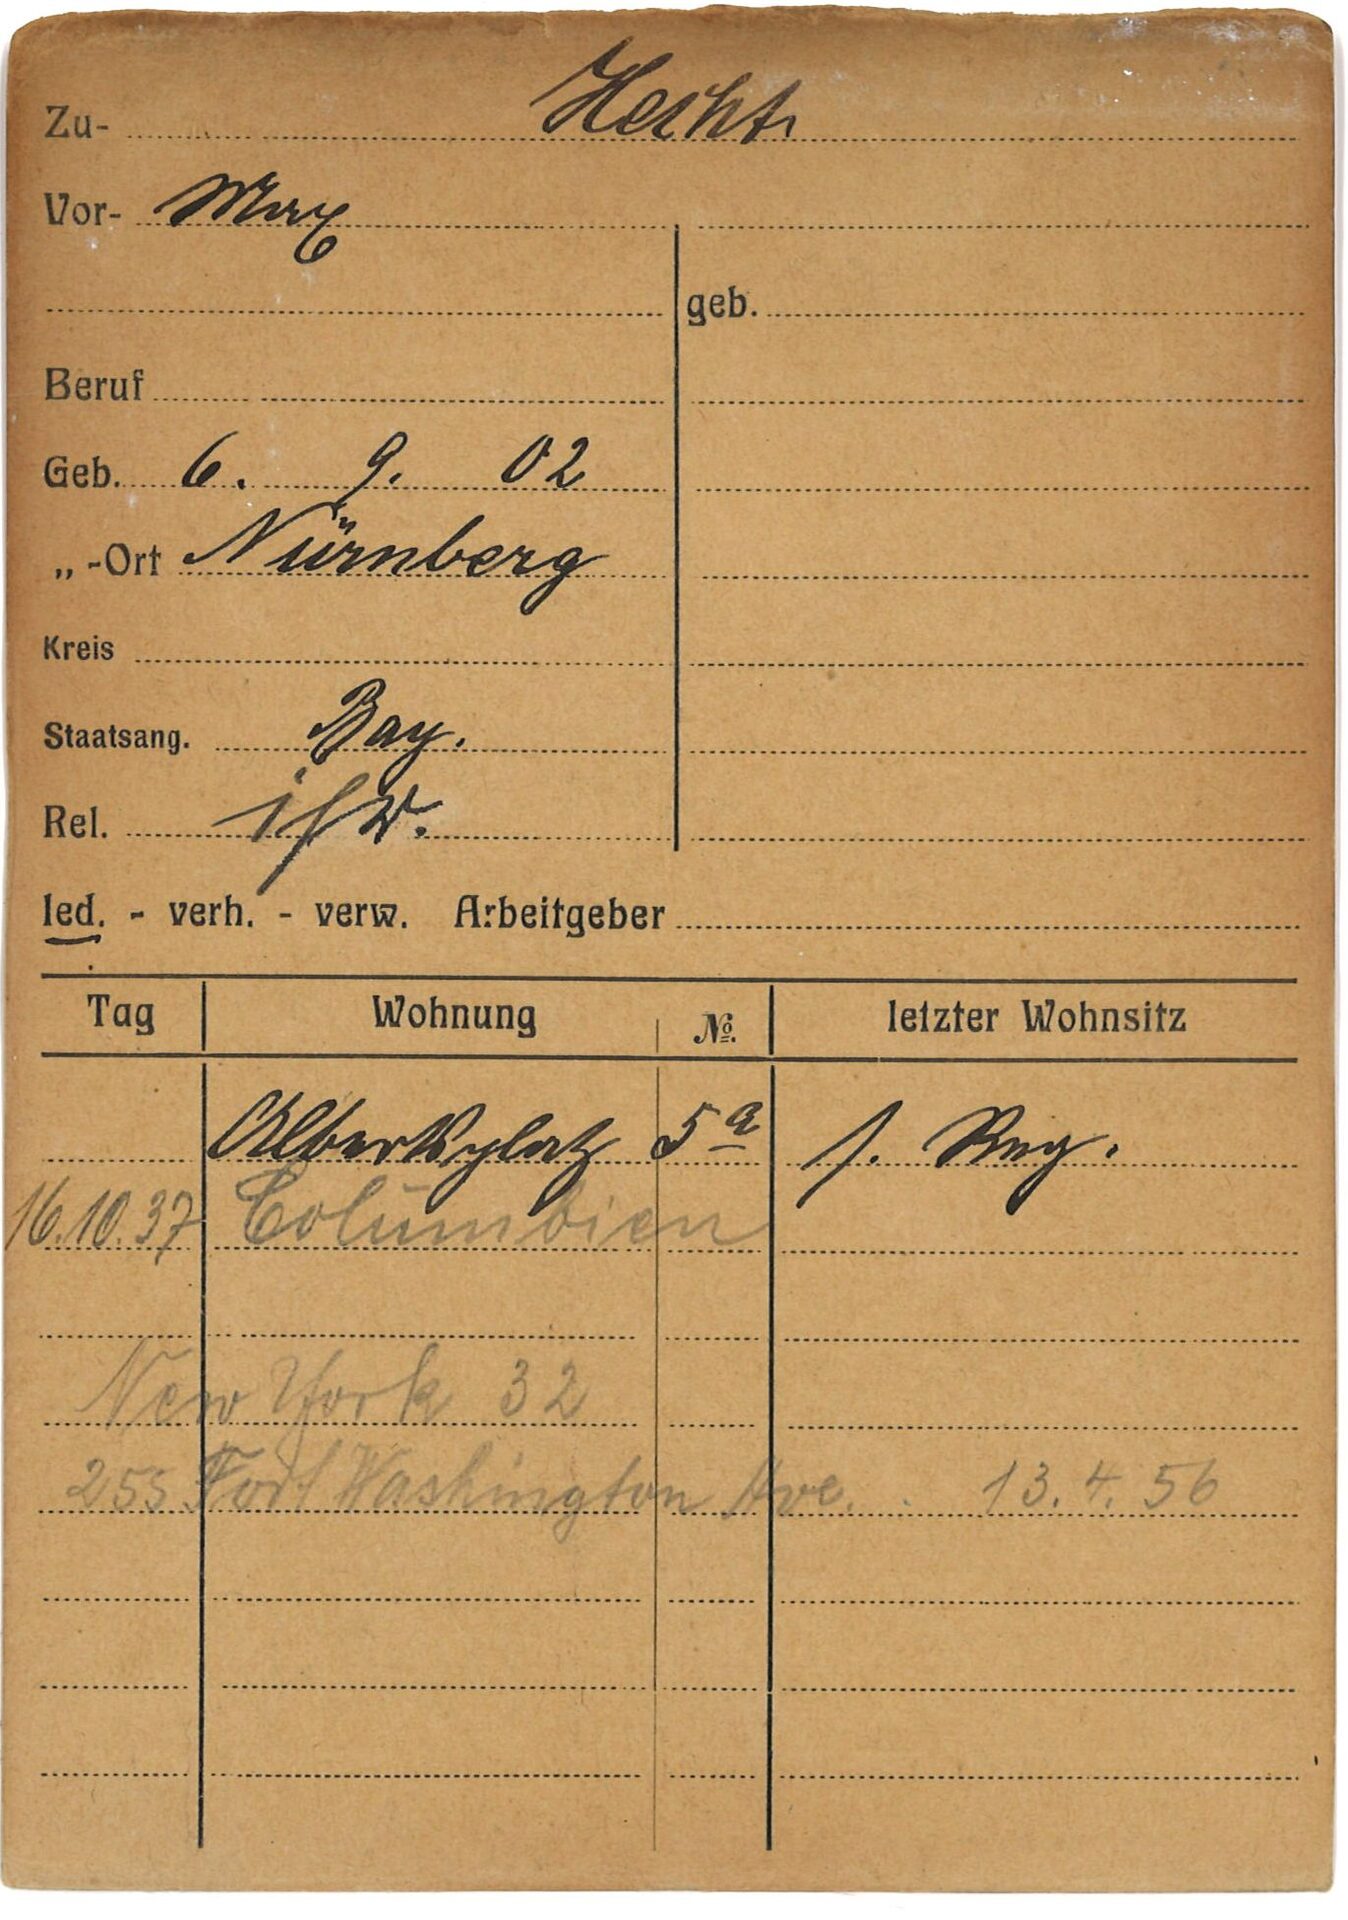 Zu- Hecht
Vor- Max
geb.
Beruf
Geb. 6. 9. 02
„ -Ort Nürnberg
Kreis
Staatsang. Bay.
Rel. isr.
led. - verh. - verw. Arbeitgeber
Tag Wohnung No. letzter Wohnsitz
Albertsplatz 5a s. Reg.
16.10.37 Columbien
New York 32
255 Fort Washington Ave. 13.4.56